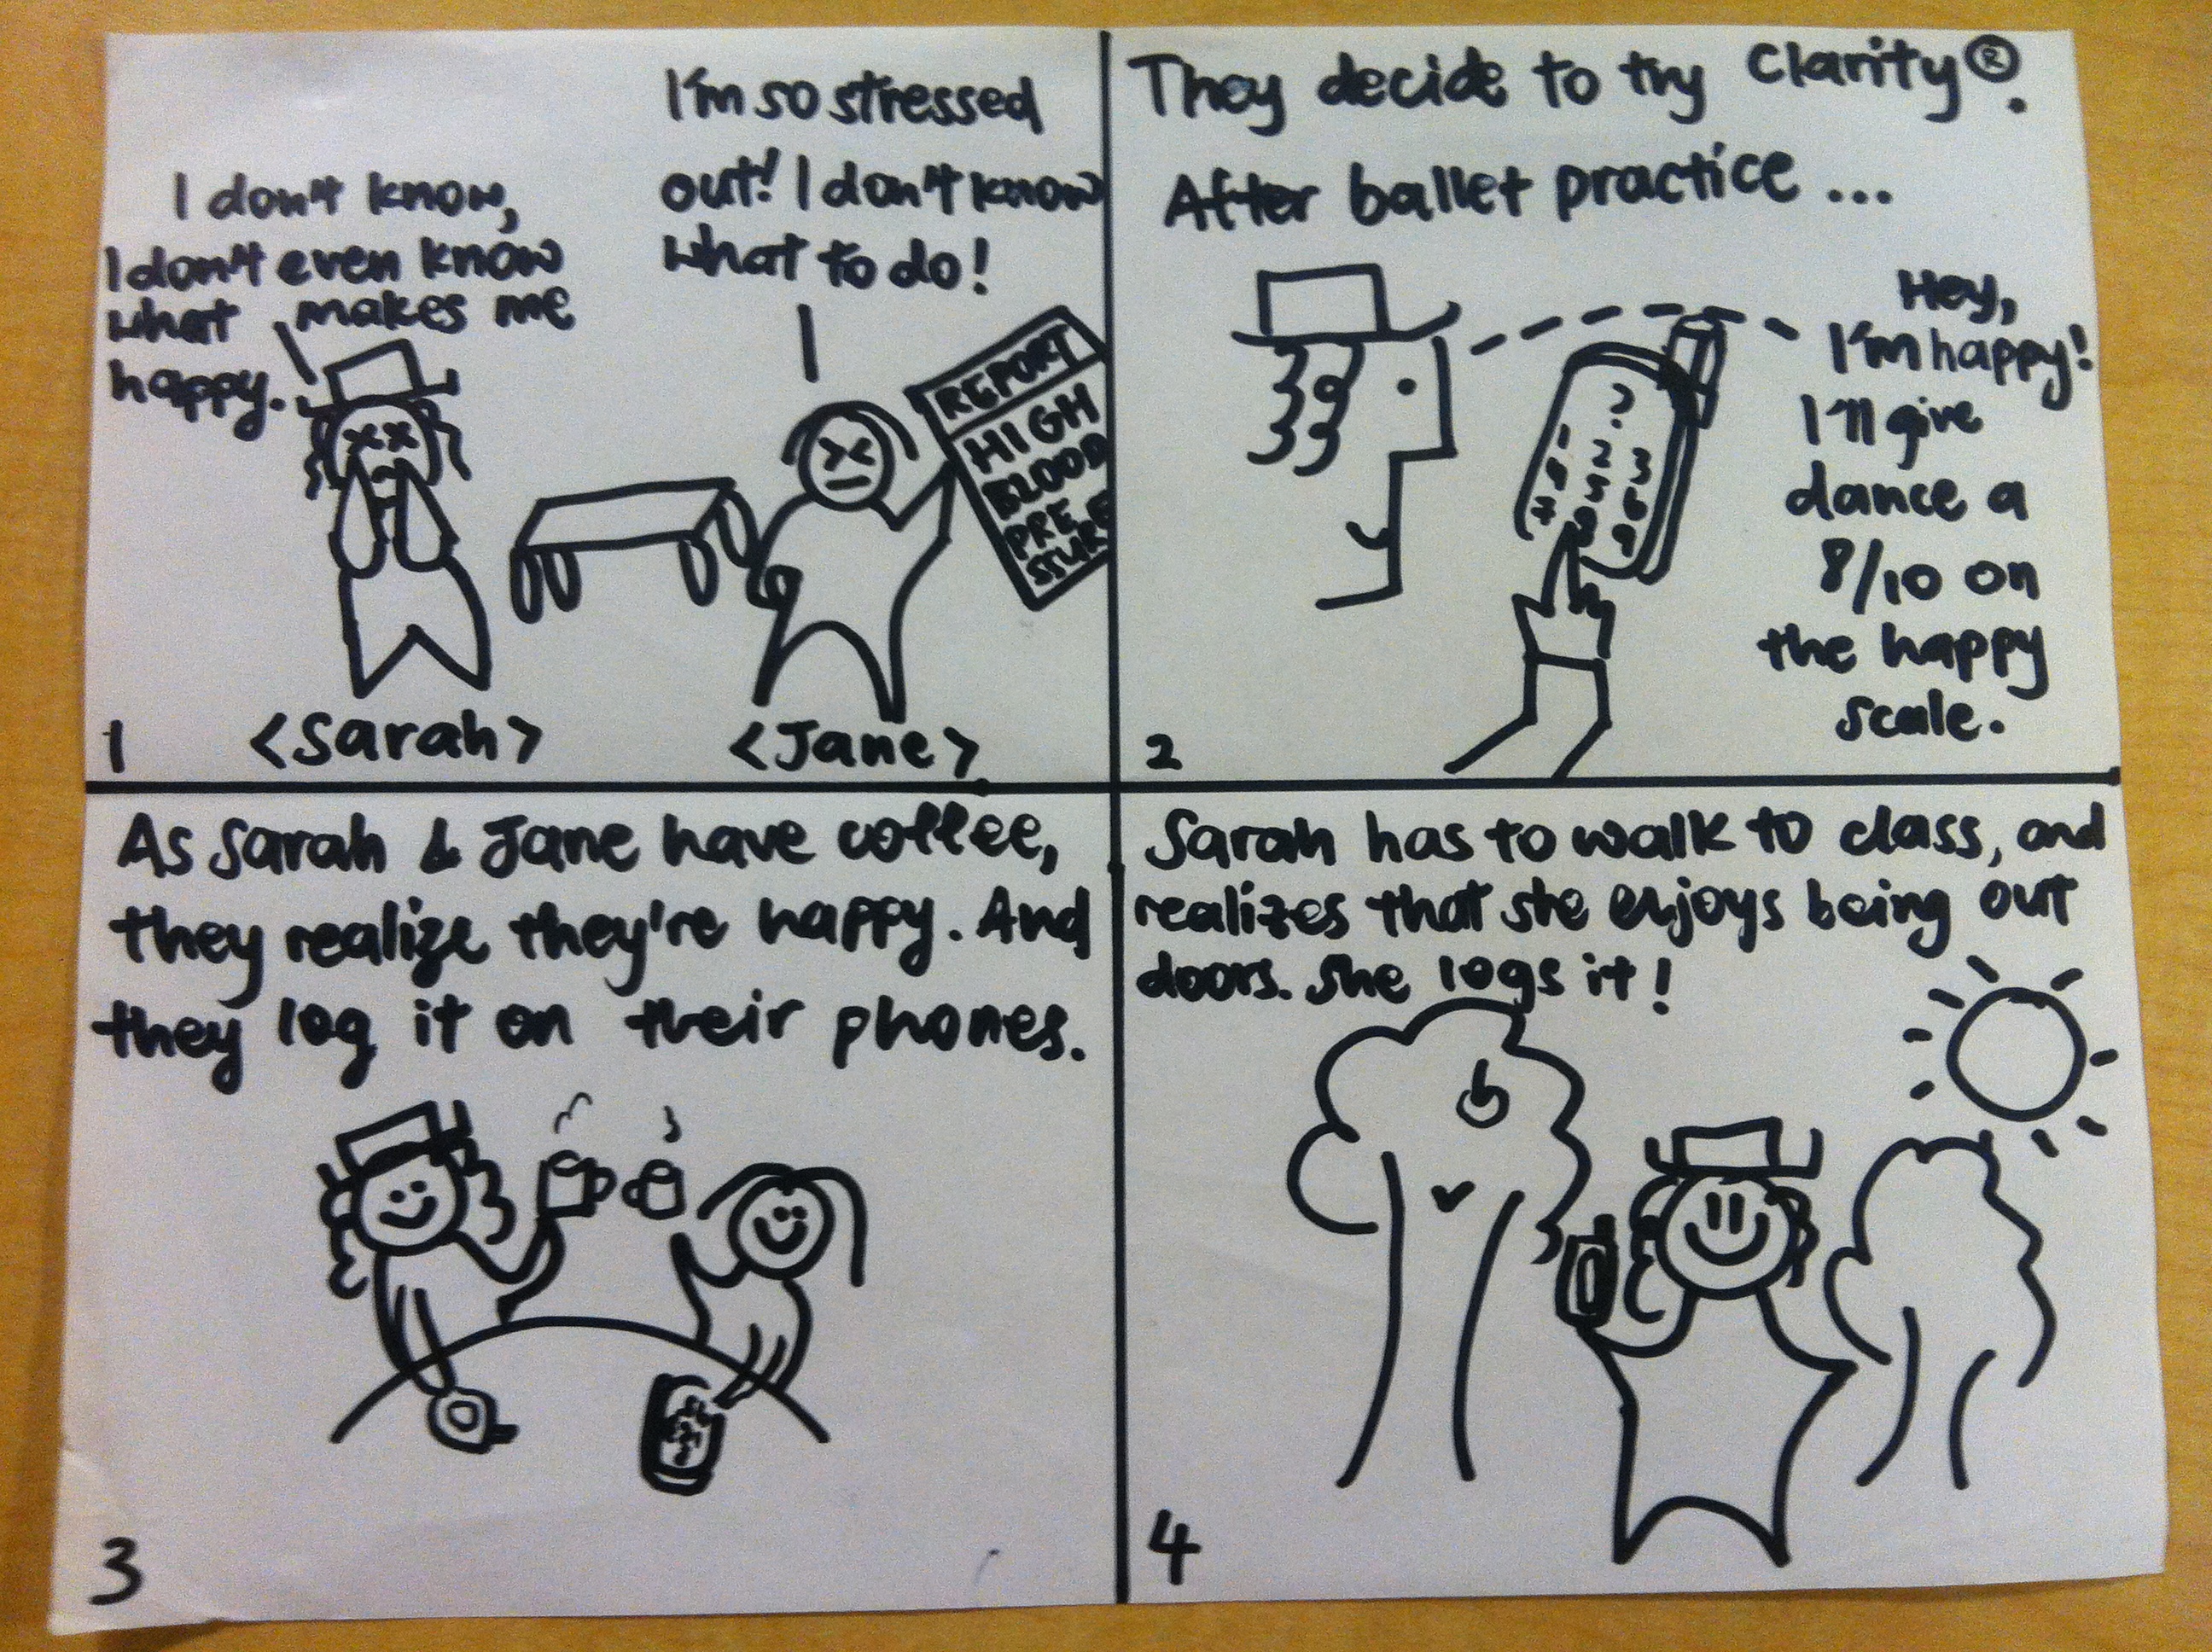 I'm so stressed
out! I don't know
what to do!
I don't know,
I don't even know
what makes me
happy.
REPORT
HIGH
BLOOD
PRE
SSURE
<Sarah>
<Jane>
1
They decide to try Clarity®.
After ballet practice ...
Hey,
I'm happy!
I'll give
dance a
8/10 on
the happy
scale.
2
As Sarah & Jane have coffee,
they realize they're happy. And
they log it on their phones.
3
Sarah has to walk to class, and
realizes that she enjoys being out
doors. She logs it!
4